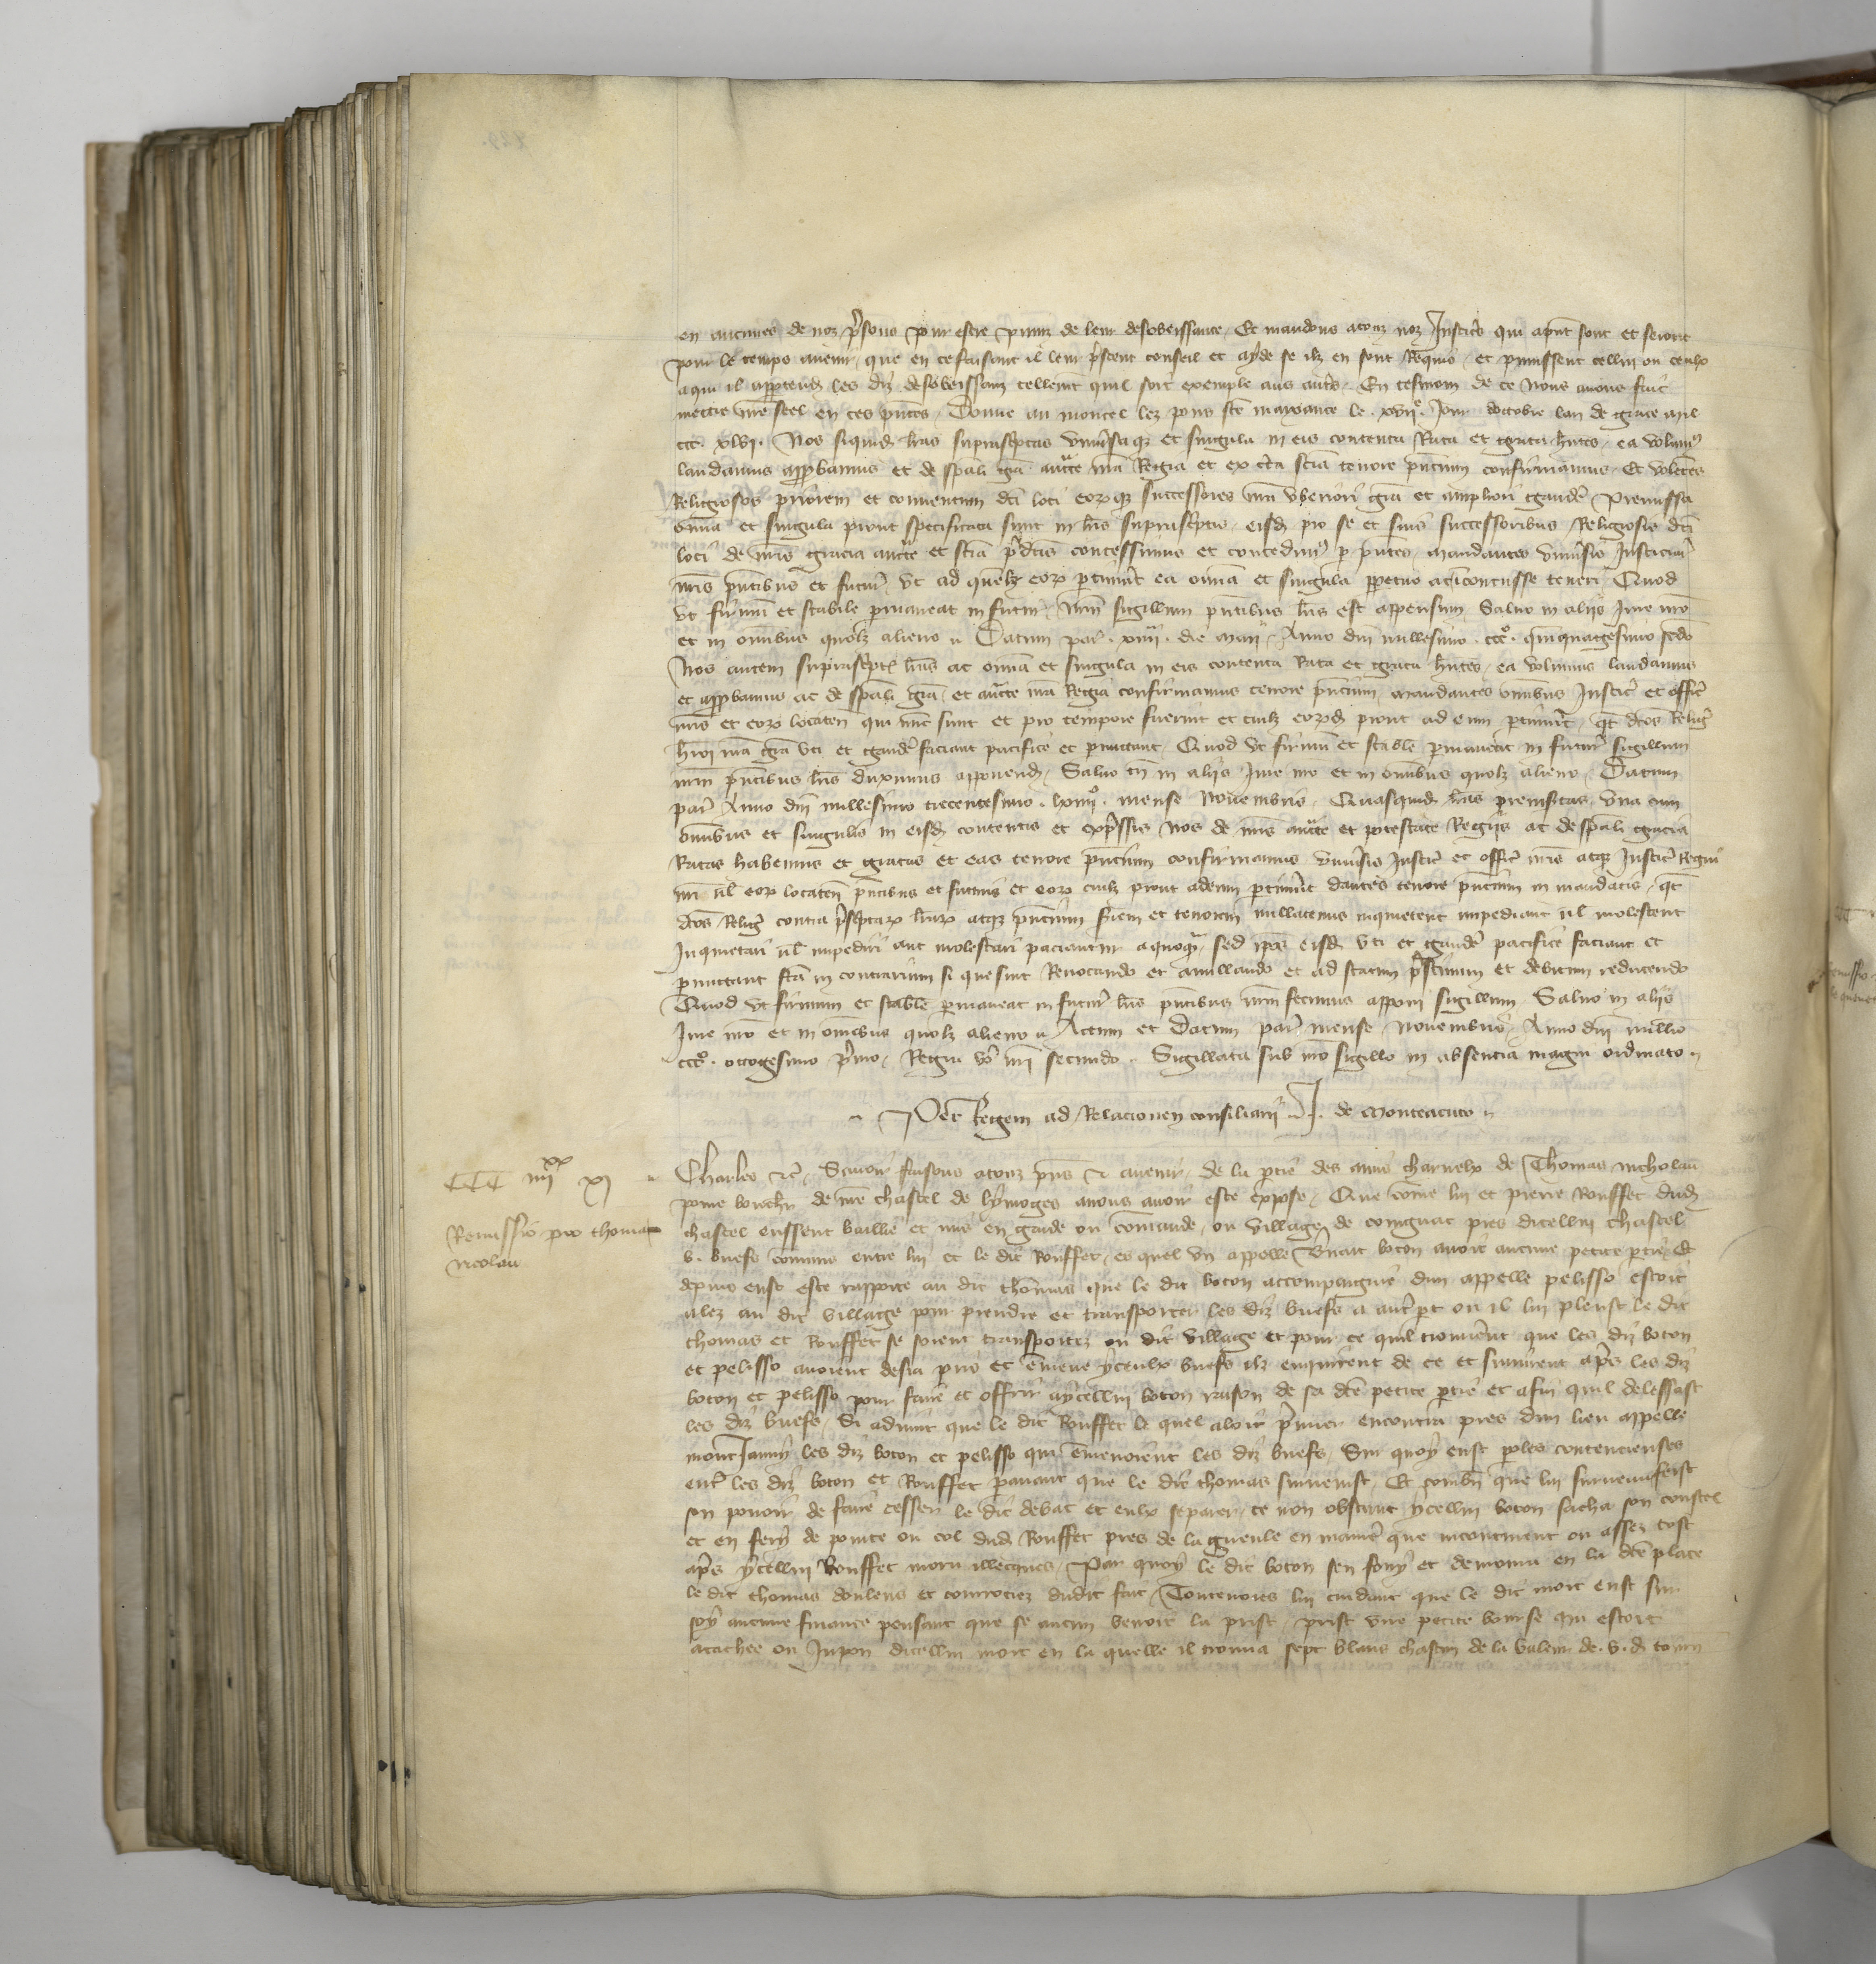 en aucunes de noz prisons pour estre puniz de leur desobeissance. Et mandons a touz noz Justiciers qui apnt sont et seront
pour le temps avenir, que en ce faisant il leur prestent conseil et ayde se ilz en sont Requis, et punissent cellui ou ceulx
a qui il appertendra les diz desobeissans tellemt quil soit exemple aus autres. En tesmoin de ce Nous avons fait
mettre nre seel en ces pntes. Donne au moncel lez pons ste maxance le .xvii.e Jour doctobre lan de grace mil
ccc. xlvi. Nos siquid lras suprascptas univsaq et singula in eis contenta Rata et grata hntes, ea volum
laudamus approbamus et de spali gra aucte nra Regia et ex cta scia tenore pncium confirmamus. Et volentes
Religiosos priorem et conventum dci loci eorq successores nra uberiori gra et ampliori gaudere premissa
omia et singula prout specificata sunt in lris suprascptis, eisd pro se et suis successoribus Religiosis dci
loci de nris gracia aucte et scia pdcis concessimus et concedim p pntes, mandantes univsis Justiciar
nris pntibus et futur, ut ad quelz eor ptinuit ea omia et singula ppetuo teneri Quod
ut firmu et stabile pmaneat in futur, nrm sigillum pntibus lris est appensum, Salvo in aliis Jure nro
et in omibus quolz alieno. Datum par .xiiii. die maii, Anno dni millesimo .ccco. quinquagesimo scdo
Nos autem suprascpt lras ac omia et singula in eis contenta Rata et grata hntes, ea volumus laudamus
et approbamus ac de spali gra, et aucte nra Regia confirmamus tenore pncium, mandantes omibus Justic et offic
nris et eor locaten qui nuc sunt et pro tempore fuerint et cuilz eord prout ad eum ptinuit, qt dcos Relig
hmoi nra gra uti et gaudere faciant pacifice et pmittant. Quod ut firmu et stabile pmaneat in futur sigillum
nrm pntibus lris duximus apponend, Salvo tn in aliis Jure nro et in omibus quolz alieno, Datum
par Anno dni millesimo trecentesimo .lxiiio. mense Novembris, Quasquid lras preinsertas una cum
omibus et singulis in eisd contentis et expssis Nos de nris aucte et potestate Regiis ac de spali gracia
Ratas habemus et gratas et eas tenore pncium confirmamus univsis Justic et offic nris atq Justic Regni
nri ul eor locaten pntibus et futuris et eor cuilz prout ad eum ptinuit dantes tenore pncium in mandatis, qt
dcos Relig contra pscptar lrar atq pncium siem et tenorem nullatenus inquietent impediant ul molestent
Inquietari ul impediri aut molestari paciantur a quoq, sed ipos eisd uti et gaudere pacifice faciant et
pmittant fca in contrarium si que sint Revocando et anullando et ad statum pstinum et debitum reducendo
Quod ut firmum et stabile pmaneat in futur lris pntibus nrm fecimus apponi sigillum. Salvo in aliis
Jure nro et in omibus quolz alieno. Actum et Datum par mense Novembris, Anno dni millio
ccco. octogesimo pmo, Regni vo nri secundo. Sigillata sub nro sigillo in absencia magni ordinato.
Per Regem ad Relacionem consiliarii J. de Monteacuto
CCC iiiixx xi
Charles etc, Savoir faisons a touz pns et avenir, de la ptie des amis charnelx de Thomas Nicholau
povre de nre chastel de lymoges avons avoir este expose, Que come lui et pierre Rouffet dud
Remissio pro thoma
nicolau
chastel eussent baille et mis en garde ou comande, ou village de couignac pres dicellui chastel
v. buefs comuns entre lui et le dit Rouffet, es quel un appelle boton avoit aucune petite ptie Et
depuis eust este rapporte au dit thomas que le dit boton accompaigne dun appelle pelisso estoit
alez au dit village pour prendre et transporter les diz buefs a autre pt ou il lui pleust le dit
thomas et Rouffet se soient transportez ou dit village et pour ce quil trouverent que les diz boton
et pelisso avoient desia pris et emene yceulx buefs ilz enquirent de ce et suivirent apres les diz
boton et pelisso pour faire et offrir a ycellui boton raison de sa dte petite ptie et afin quil delessast
les diz buefs, Si advint que le dit Rouffet le quel aloit pmier encontra pres dun lieu appelle
mont Jauvy les diz boton et pelisso qui emenoient les diz buefs, Sur quoy eust poles contencieuses
entre les diz boton et Rouffet pavant que le dit thomas survenist, Et combn que lui survenu feist
son povoir de faire cesser le dit debat et eulx separer, ce non obstant ycellui boton sacha son coustel
et en fery de pointe ou col dud Rouffet pres de la gueule en maniere que incontinent ou assez tost
apres ycellui Rouffet moru illecques, Par quoy le dit boton sen fouy et demoura en la dte place
le dit thomas doulens et courrociez dudit fait, Toutevoies lui cuidant que le dit mort eust sur
soy aucune finance pensant que se aucun venoit la prist, prist une petite bourse qui estoit
atachee ou Jupon dicellui mort en la quelle il trouva sept blans chascun de la valeur de .v. d. tourn